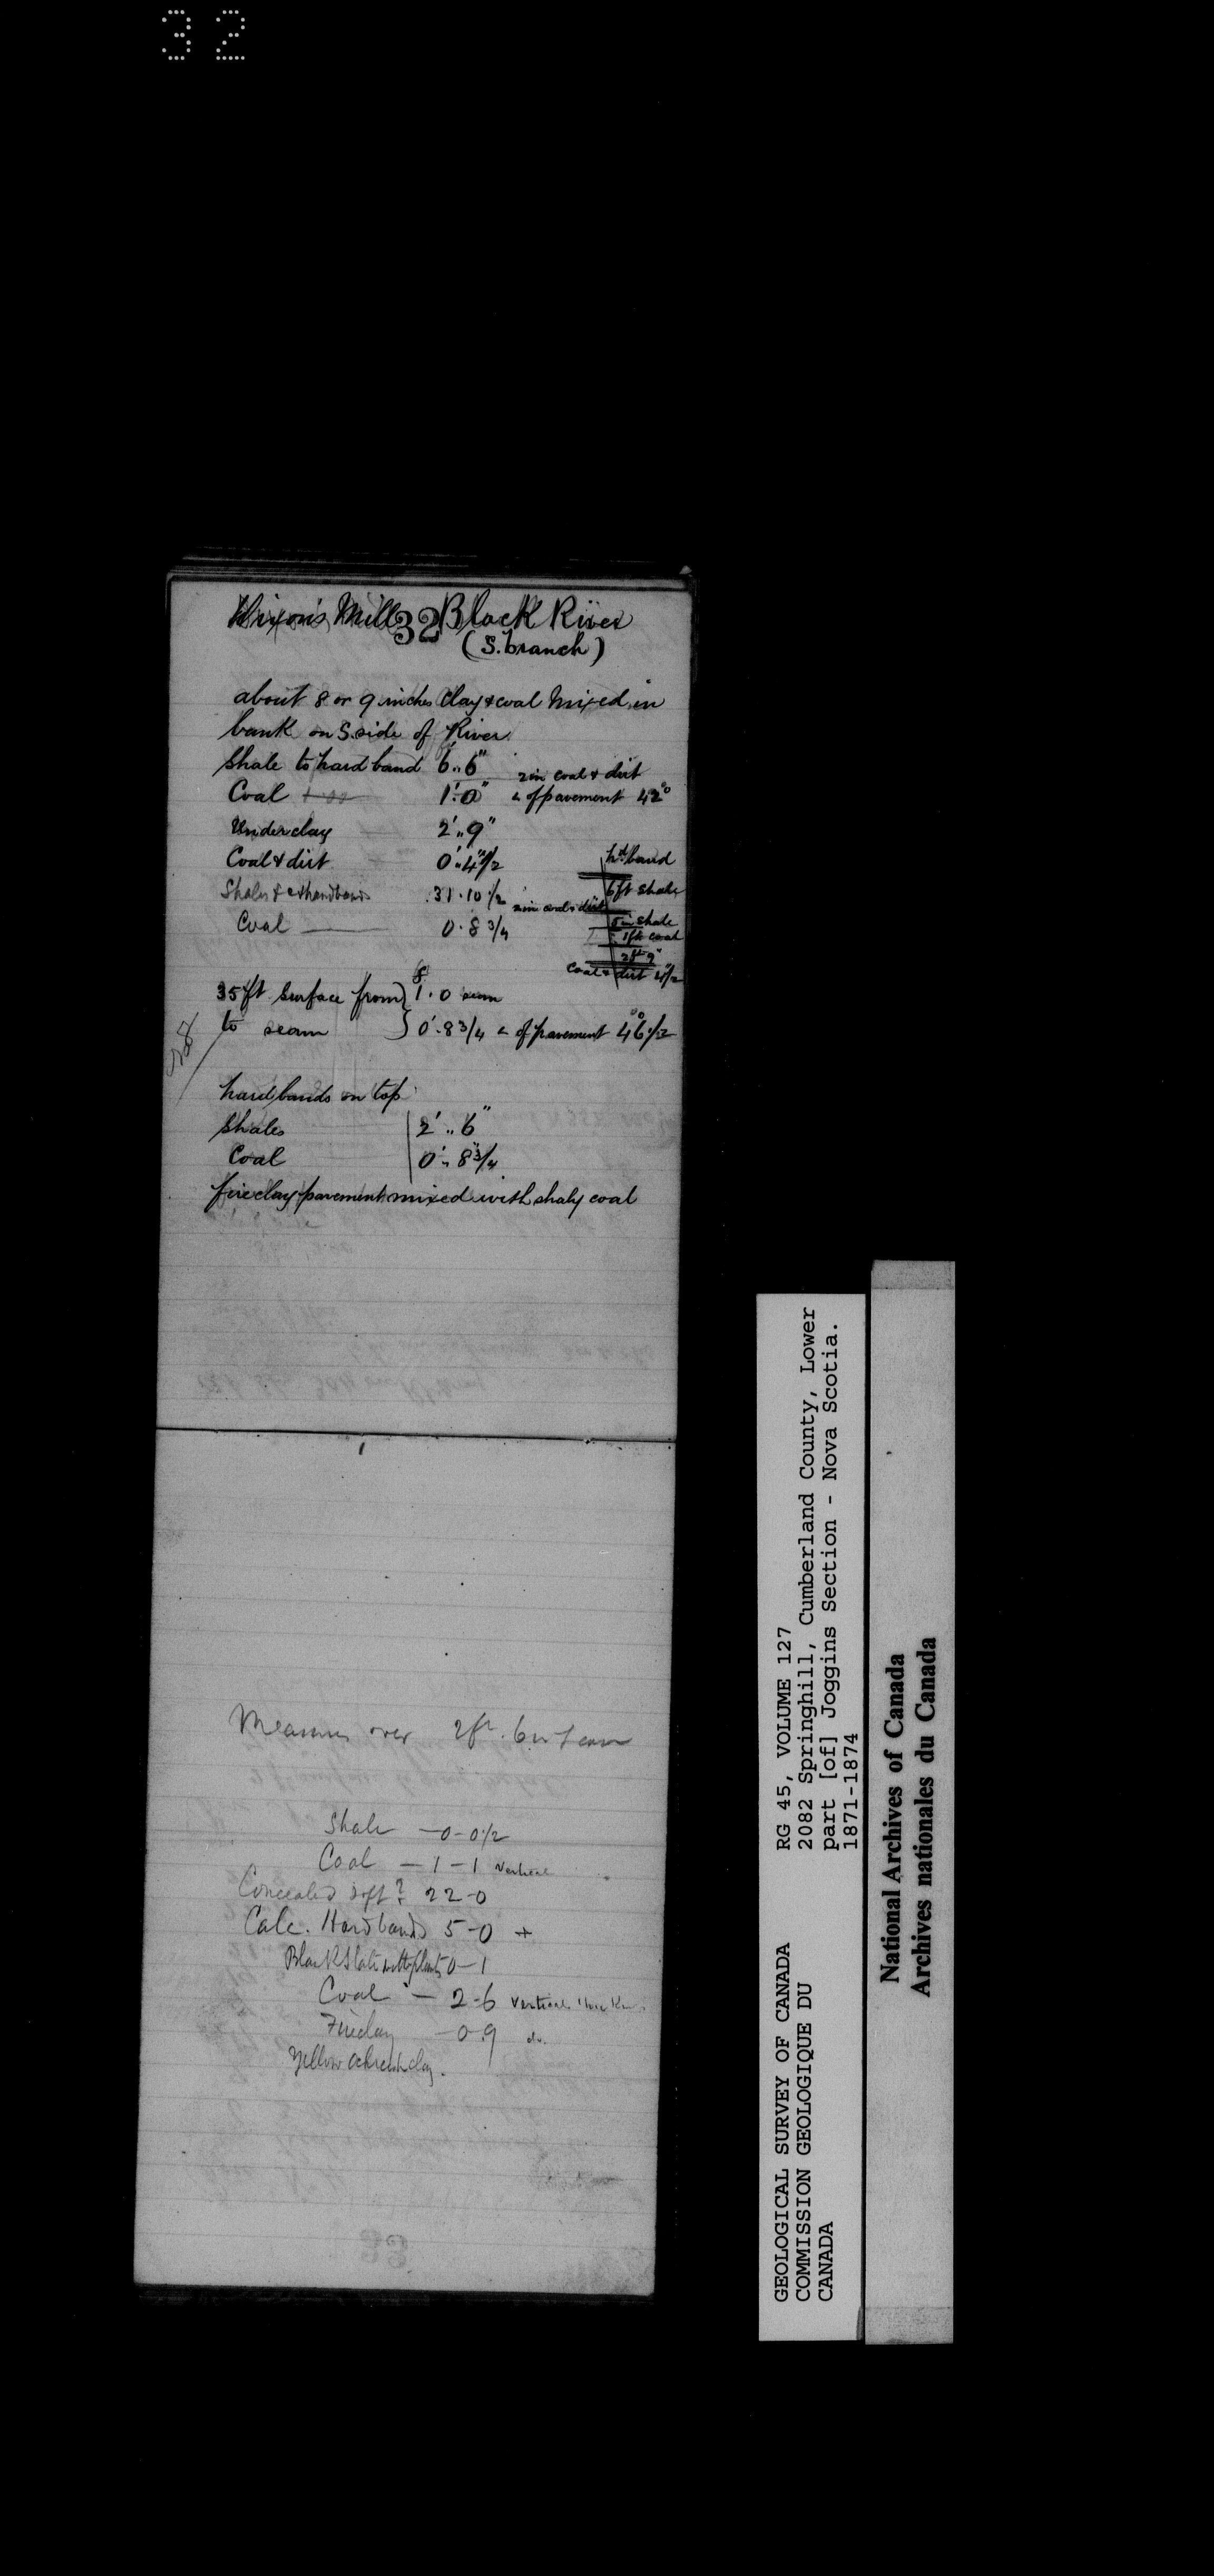 32
Hixon's Mill 32 Black River
(S. branch)
about 8 or 9 inches Clay & coal Mixed in
bank on S. side of River.
Shale to hard band 6'..6" 2in coal & dirt
Coal 1'.0" ∠ of pavement 42°
Underclay 2'..9"
Coal & dirt 0'..4"1/2
hd band
Shales & hardbands 31.10 1/2 2in coal & dirt
6ft shale
Coal 0.8 3/4
5in shale
1ft coal
2ft 9"
coal & dirt 4"1/2
35ft Surface from } 1.0 seam
to seam } 0'.8 3/4 ∠ of pavement 46°1/2
hard bands on top
Shales 2'..6"
Coal 0'..8"3/4
fireclay pavement mixed with shaly coal
Measures over 2ft. 6in seam
Shale — 0-0 1/2
Coal — 1-1 vertical
Concealed soft? 22-0
Calc. Hardbands 5-0 +
Black slate with plants 0-1
Coal — 2-6 vertical thickness
Fireclay — 0.9 do.
Yellow ochreish clay.
GEOLOGICAL SURVEY OF CANADA
COMMISSION GEOLOGIQUE DU
CANADA
RG 45, VOLUME 127
2082 Springhill, Cumberland County, Lower
part [of] Joggins Section - Nova Scotia.
1871-1874
National Archives of Canada
Archives nationales du Canada